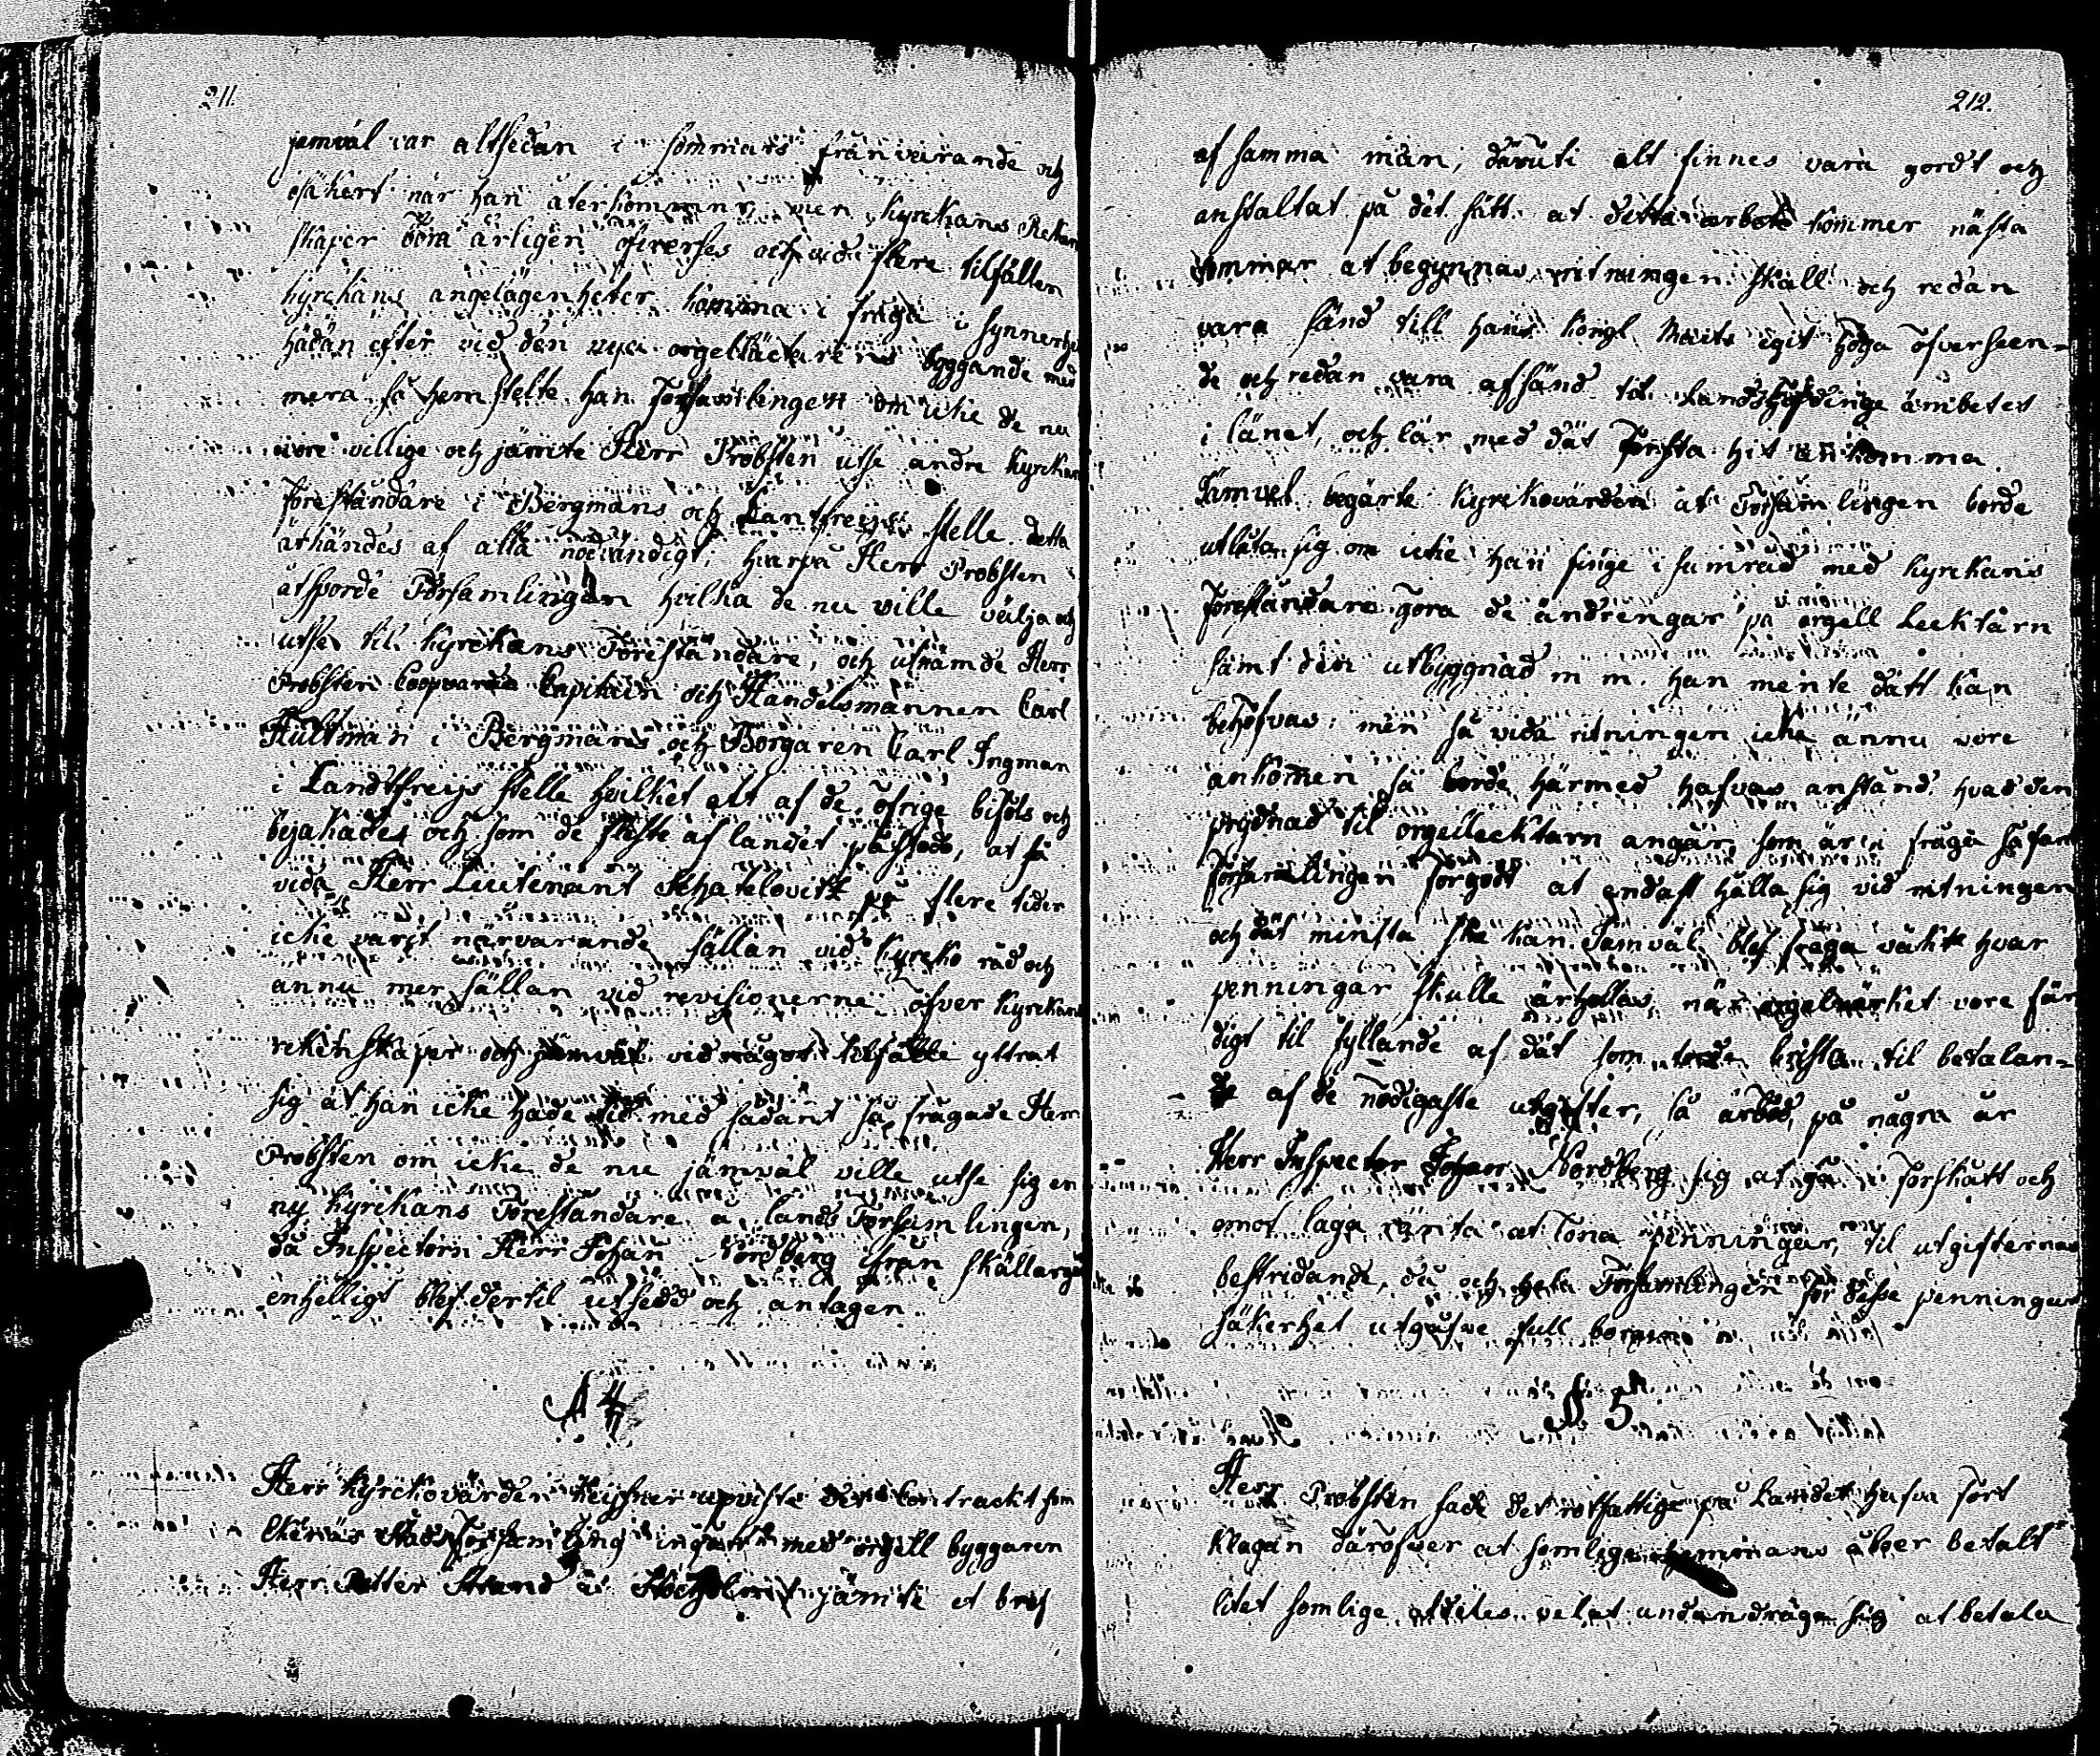 211.
jemväl var altsedan i sommars frånvarande och
osäkert när han återkommer, men kyrkans Reken
skaper böra årligen öfverses och vid flere tilfällen
kyrckans angelägenheter komma i fråga i synnerhe
hädan efter vid den nya orgelläctarens byggande med
mera så hemstelte han Församlingen om icke de nu
vore villige och jämte Herr Probsten utse andre kyrckans
Föreståndare i Bergmans och Lantfreijs stelle detta
ärkändes af alla nödvändigt, hvarpå Herr Probsten
åtsporde Församlingen hvilka de nu ville välja och
utse til kyrckans Föreståndare, och utnämde Herr
Probsten Coopvardie Capitain och Handelsmannen Carl
Hultman i Bergmans och Borgaren Carl Ingman
i Landtfreijs stelle hvilket alt af de öfrige bifols och
bejakades och som de fleste af landet påstodo, at så
vida Herr Lieutenant Schatelovitz på flere tider
icke varit närvarande sällan vid kyrcko råd och
ännu mer sällan vid revisionerne öfver kyrckans
rekenskaper och jämväl vid något tilfälle yttrat
sig at han icke hade tid med sådant så frågade Herr
Probsten om icke de nu jämväl ville utse sig en
ny kyrckans Föreståndare å lands Församlingen,
då Inspectorn Herr Johan Nordberg ifrån Skållargå
enhelligt blef dertil utsedd och antagen.
§ 4
Herr kyrckovärden upviste den Contrackt som
Ekenäs Stads Församling ingått med orgell byggaren
Herr Petter Strand i Stockholm jämte et bref
212.
af samma man, däruti alt finnes vara gordt och
anstaltat på det sätt at detta arbete kommer nästa
sommar at begynnas ritningen skall och redan
vara sänd till hans kongl Maits egit höga öfverseen-
de och redan vara afsänd til Landshöfdinge ämbetet
i länet, och lär med dät första hit ankomma.
Jämvel begärte kyrckovärden at Församlingen borde
utlåta sig om icke han finge i samråd med kyrckans
Föreståndare göra de ändrengar på orgell Lecktarn
samt den utbyggnad m m. han mente dätt kan
behöfvas: men så vida ritningen icke ännu vore
ankommen så borde härmed hafvas anstånd. hvad den
prydnad til orgellecktarn angår, som är i fråga så fan
Församlingen för godt at endast hålla sig vid ritningen
och dät minsta ske kan. Jämväl blef fråga väkt hvar
penningar skulle ärhollas, när orgelvärket vore fär
digt til fyllande af dät som torde brista til betalan-
de af de nödigaste utgifter, så ärböd på några år
Herr Inspector Johan Nordberg sig at gå i förskått och
emot laga ränta at låna penningar, til utgifternas
bestridande, då och hela Församlingen för desse penningars
säkerhet utgåfve full borgen.
§ 5
Herr Probsten sade det rotfattige på Landet hafva fört
klagan däröfver at somliga hemmans åboer betalt
litet somlige aldeles velat undandraga sig at betala